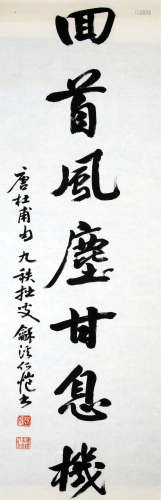 回首風塵甘息機
唐杜甫句 九秩拙叟龢溪仁愷書